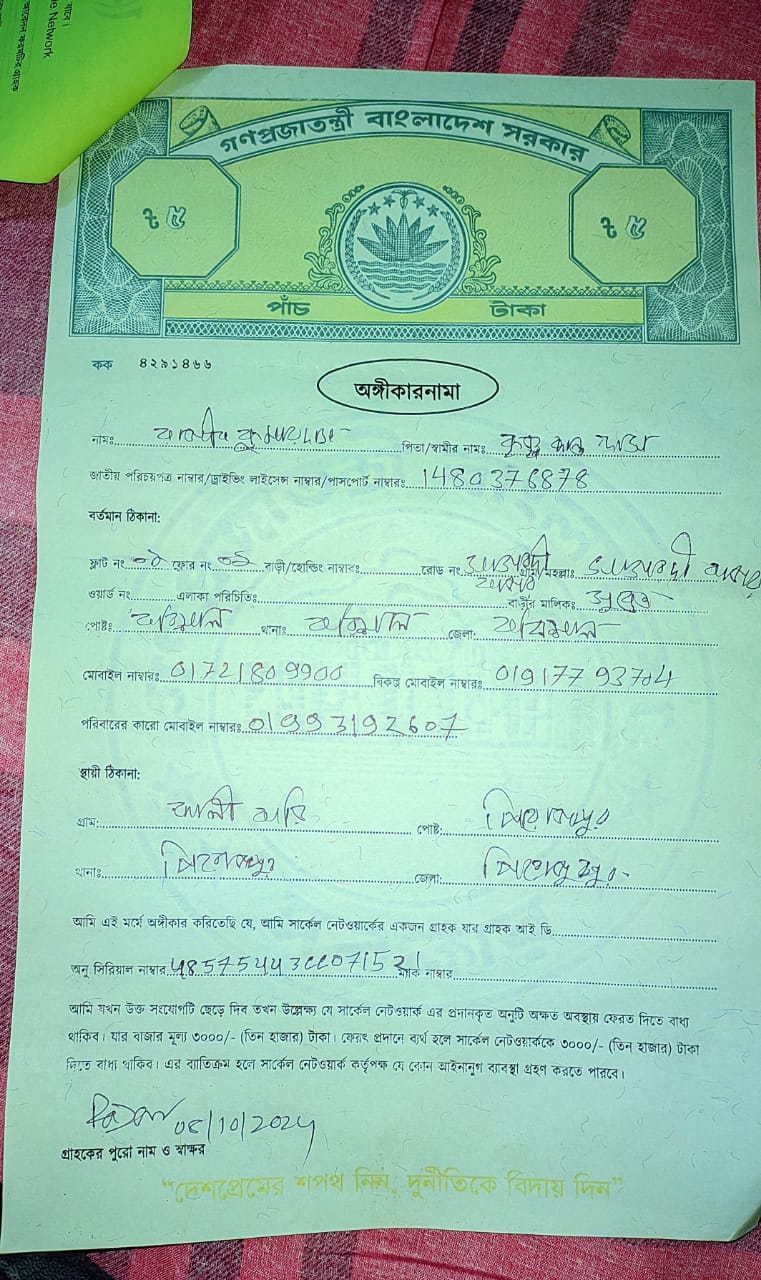 যাবে।
e Network
আবেদন ফরমটির গ্রাহক
গণপ্রজাতন্ত্রী বাংলাদেশ সরকার
৳ ৫ ৳ ৫
পাঁচ টাকা
কক ৪২৯১৪৬৬
অঙ্গীকারনামা
নামঃ কুমার দাস পিতা/স্বামীর নামঃ কৃষ্ণ কান্ত
জাতীয় পরিচয়পত্র নাম্বার/ড্রাইভিং লাইসেন্স নাম্বার/পাসপোর্ট নাম্বারঃ 1480376878
বর্তমান ঠিকানা:
ফ্লাট নং ফ্লোর নং বাড়ী/হোল্ডিং নাম্বারঃ রোড নং
ওয়ার্ড নং এলাকা পরিচিতিঃ বাড়ীর মালিকঃ
পোষ্টঃ বরিশাল থানাঃ বরিশাল জেলা: বরিশাল
মোবাইল নাম্বারঃ 01721809900 বিকল্প মোবাইল নাম্বারঃ 01917793704
পরিবারের কারো মোবাইল নাম্বারঃ 01993192607
স্থায়ী ঠিকানা:
গ্রাম: পোষ্ট: পিরোজপুর
থানাঃ পিরোজপুর জেলা: পিরোজপুর
আমি এই মর্মে অঙ্গীকার করিতেছি যে, আমি সার্কেল নেটওয়ার্কের একজন গ্রাহক যার গ্রাহক আই ডি
অনু সিরিয়াল নাম্বার ম্যাক নাম্বার
আমি যখন উক্ত সংযোগটি ছেড়ে দিব তখন উল্লেক্ষ্য যে সার্কেল নেটওয়ার্ক এর প্রদানকৃত অনুটি অক্ষত অবস্থায় ফেরত দিতে বাধ্য
থাকিব। যার বাজার মূল্য ৩০০০/- (তিন হাজার) টাকা। ফেরৎ প্রদানে ব্যর্থ হলে সার্কেল নেটওয়ার্ককে ৩০০০/- (তিন হাজার) টাকা
দিতে বাধ্য থাকিব। এর ব্যতিক্রম হলে সার্কেল নেটওয়ার্ক কর্তৃপক্ষ যে কোন আইনানুগ ব্যবস্থা গ্রহণ করতে পারবে।
08/10/2024
গ্রাহকের পুরো নাম ও স্বাক্ষর
"দেশপ্রেমের শপথ নিন, দুর্নীতিকে বিদায় দিন"